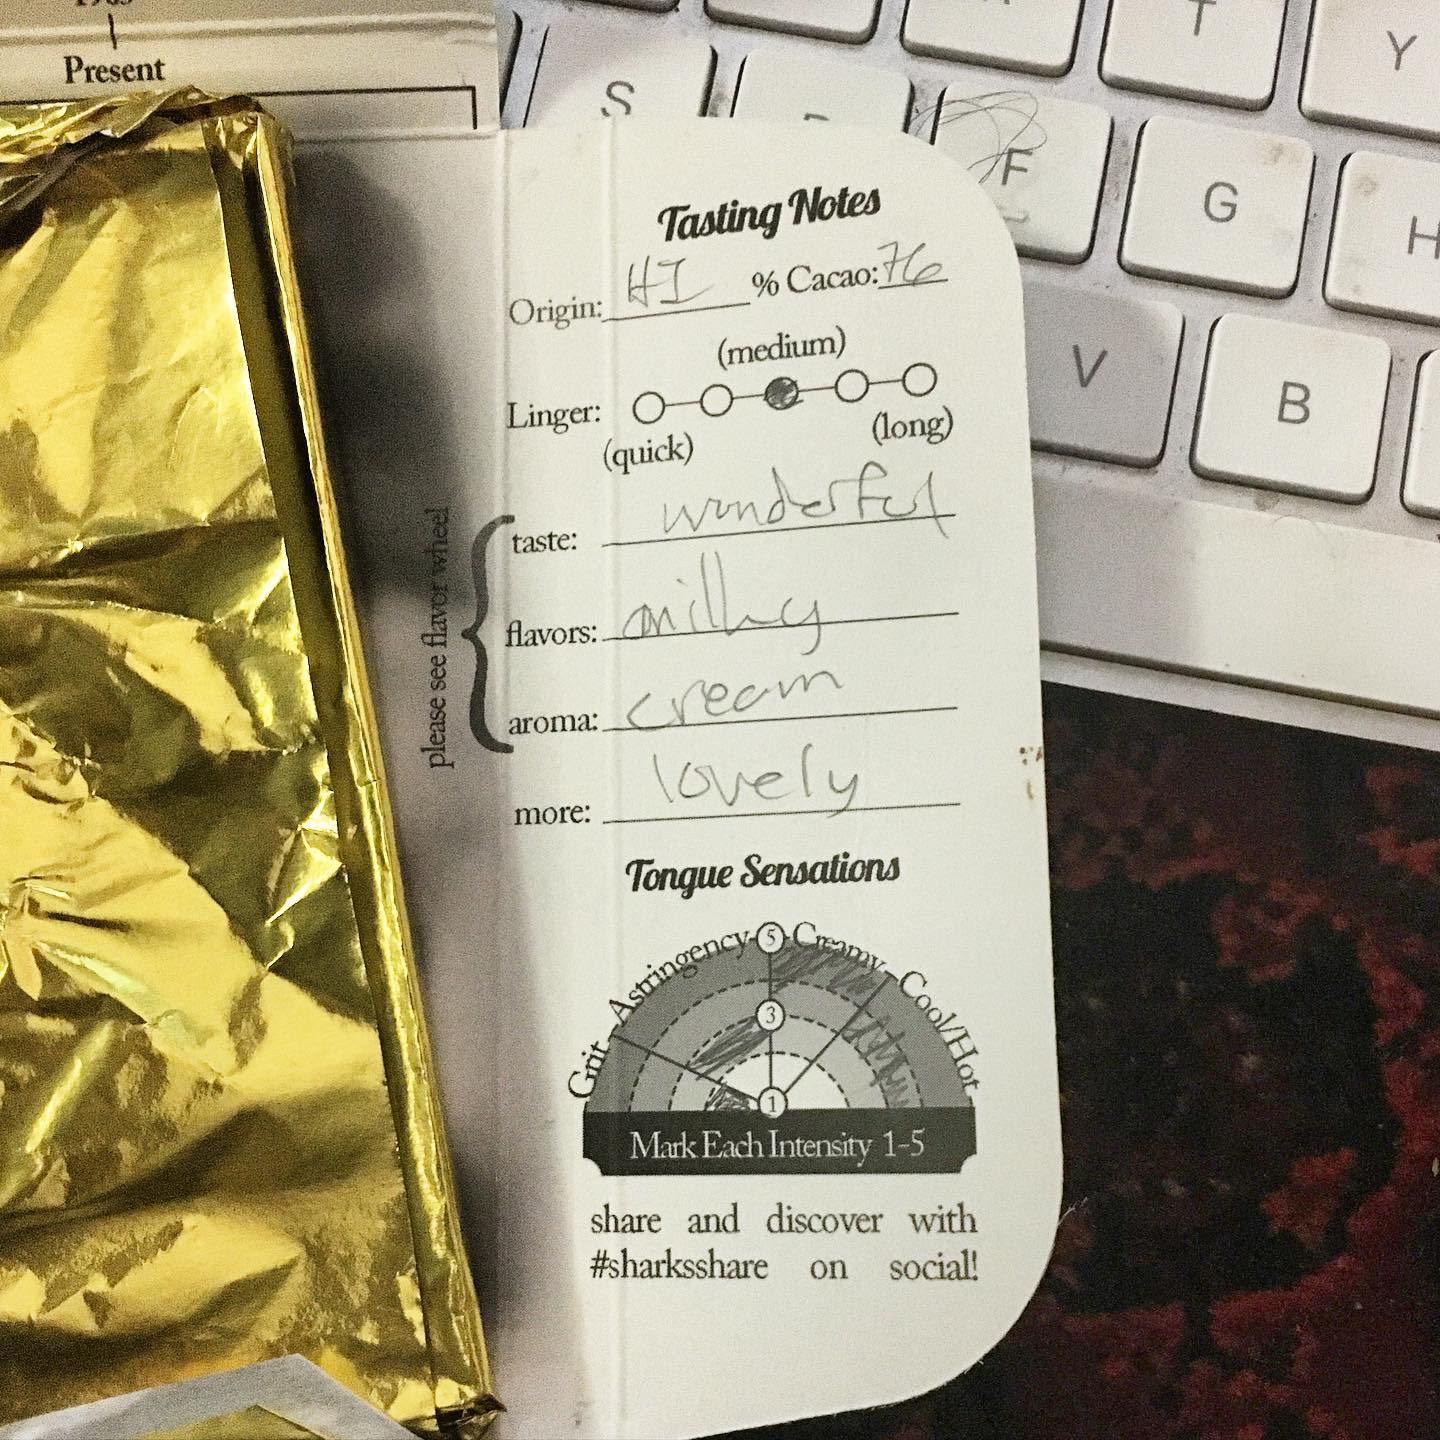 Present
S
T
Y
F
G
H
V
B
Tasting Notes
Origin: HI % Cacao: 76
(medium)
Linger:
(quick) (long)
please see flavor wheel
taste: wonderful
flavors: milky
aroma: cream
more: lovely
Tongue Sensations
Grit Astringency 5 Creamy Cool/Hot
3
1
Mark Each Intensity 1-5
share and discover with
#sharksshare on social!